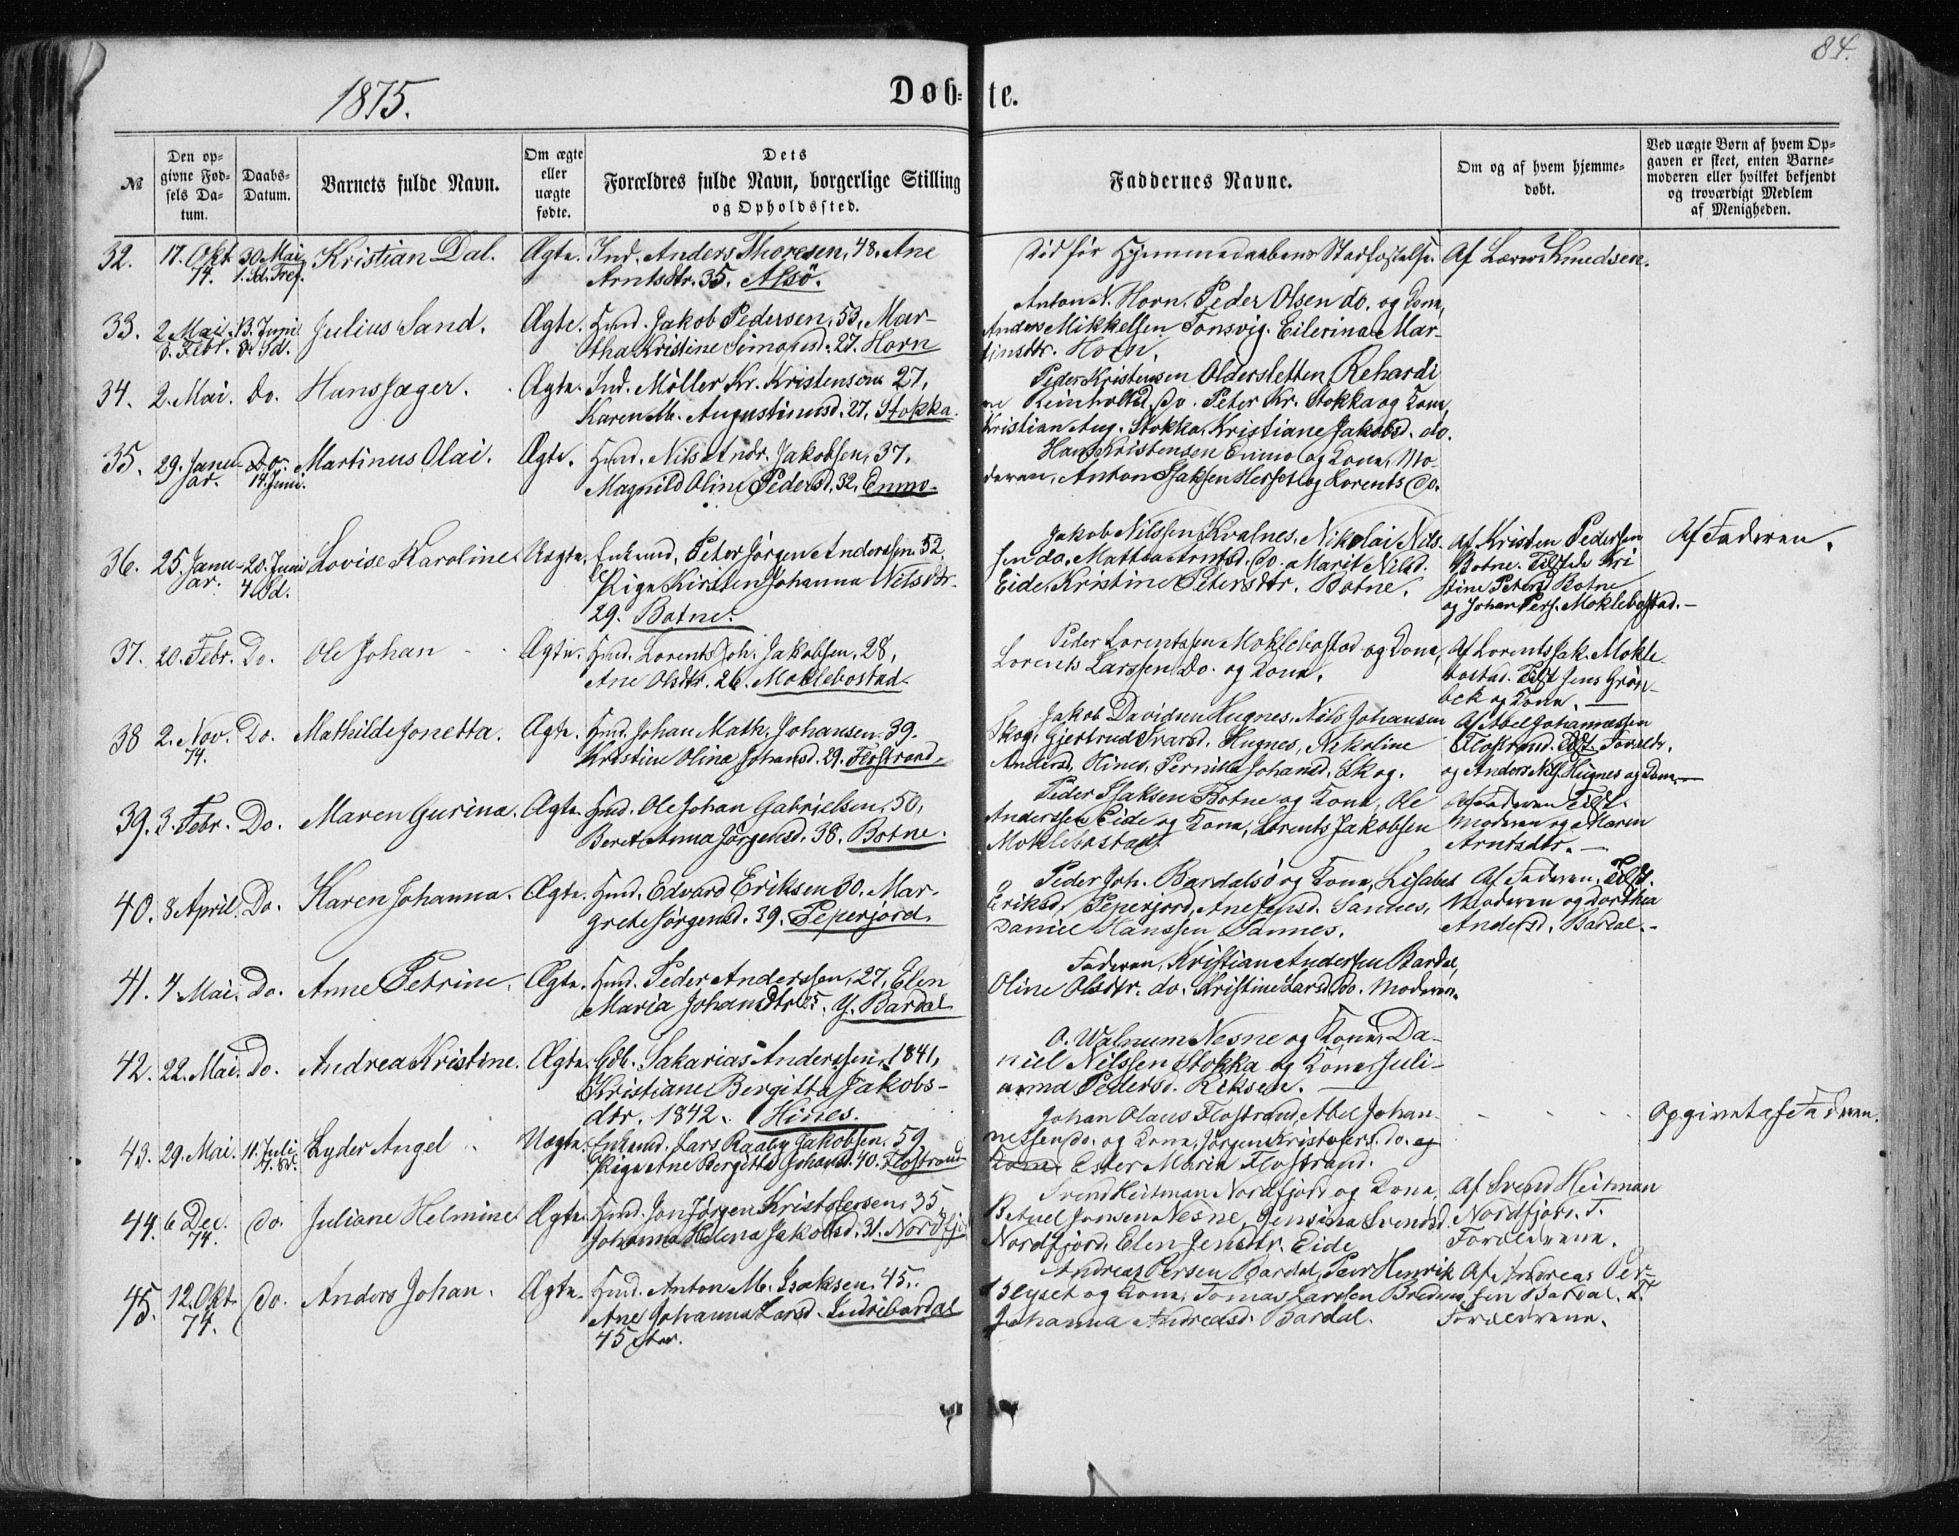 84.
1875.
Døb-
te.
№
Den op-
givne Fød-
sels Da-
tum.
Daabs-
Datum.
Barnets fulde Navn.
Om ægte
eller
uægte
fødte.
Dets
Forældres fulde Navn, borgerlige Stilling
og Opholdssted.
Faddernes Navne.
Om og af hvem hjemme-
døbt.
Ved uægte Børn af hvem Op-
gaven er skeet, enten Barne-
moderen eller hvilket bekjendt
og troværdigt Medlem
af Menigheden.
32. 17. Okt 30 Mai Kristian Dal. Ægte. Ind. Anders Thoresen, 48. Ane
74. Arntsdtr. 35. Alsö.
Af Lærer Knudsen.
33. 2 Mai. 13. Juni Julius Sand. Ægte. Husm. Jakob Pedersen, 53, Mar-
3. Sd. tha Kristine Simonsd. 27. Horn
Anton N. Horn. Peder Olsen do. og Kona,
Anders Mikkelsen Tonsvig. Eilerina Mar-
tinsdtr. Horn.
34. 2. Mai. do. Hans Jæger. Ægte. Ind. Möller Kr. Kristensen 27,
Karen M. Augustinusd. 27, Stokka.
Peder Kristensen Oldersletten, Rehardi
ne Reinholtsd. do. Peter Kr. Stokka og Kona,
Kristian Aug. Stokka, Kristiane Jakobsd. do.
35. 29. Janu- Do. Martinus Olai. Ægte. Husm. Nils Andr. Jakobsen, 37.
ar. 14. Juni. Magnild Oline Pedersd, 32, Enmo.
Hans Kristensen Enmo og Kona, Mo-
deren, Anton Isaksen Herset og Lorents do.
36. 25. Janu- 20. Juni Lovise Karoline Uægte. Enkemd. Peter Jörgen Anderssen 52.
ar. 4 Sd. Pige Kirsten Johanna Nilsdtr.
29. Botne.
Jakob Nilssen Kvalnes. Nikolai Nils-
sen do. Mattea Arntsd. do. Marit Nilsd.
Eide, Kristine Petersdtr. Botne.
Af Kristen Pedersen
Botne. Tilst. Kri
stine Petersd Botne
og Johan Pers. Moklebostad.
Af Faderen.
37. 20. Febr. Do. Ole Johan Ægte. Husm. Lorents Joh. Jakobsen, 28,
Ane Olsdtr. 26. Moklebostad.
Peder Lorentssen Moklebostad og Kona,
Lorents Larssen Do. og Kona.
Af Lorents Jak. Mokle-
bostad. Tilst Jens Grön-
bek og Kona.
38 2. Nov. Do. Mathilde Jonetta. Ægte. Husm. Johan Math. Johansen. 39.
74. Kristine Olina Johansd. 29. Flostrand.
Jakob Davidsen Hugnes, Nils Johansen
Skog, Gjertrud Ivarsd. Hugnes, Nikoline
Andersd, Hines, Pernilla Johansd. Skog.
Af Abel Johannessen
Flostrand. Tilst. Forældr.
og Anders Nils. Hugnes og Kona.
39. 3. Febr. Do. Maren Gurina. Ægte. Husm. Ole Johan Gabrielsen, 50,
Beret Anna Jörgensd. 38, Botne.
Peder Isaksen Botne og Kona, Ole
Anderssen Eide og Kona, Lorents Jakobsen
Moklebostad.
Af Faderen Tilst.
Moderen og Maren
Arntsdtr.
40. 8 April. Do. Karen Johanna. Ægte. Husm. Edvard Eriksen 30. Mar-
grete Jörgensd. 39. Peperjord.
Peder Joh. Bardalsö og Kona, Lisabet
Eriksd, Peperjord, Ane Jensd. Sannes,
Daniel Hanssen Sannes.
Af Faderen. Tilst.
Moderen og Dorthea
Andersd. Bardal.
41. 4 Mai. Do. Anne Petrine. Ægte. Husm. Peder Anderssen, 27, Elen
Maria Johansdtr. 25. Y. Bardal
Faderen, Kristian Andersen Bardal,
Oline Olsdtr. do. Kristine Larsd. Do. Moderen.
42. 22. Mai. Do. Andrea Kristine. Ægte. Gdb. Sakarias Anderssen, 1841,
Kristiane Bergitta Jakobs-
dtr. 1842. Hines.
O. Walnum Nesne og Kona, Da-
niel Nilssen Stokka og Kona, Juli-
anna Pedersd. Riksen.
43. 29. Mai. 11. Juli Lyder Angel Uægte. Enkemd. Lars Raaby Jakobsen. 59
7. Sd. Pige Ane Bergitta Johansd. 40. Flostrand
Johan Olaus Flostrand, Abel Johan-
nessen do. og Kona, Jörgen Kristofers. do. og
Kona. Ester Maria Flostrand.
Opgivet af Faderen.
44. 6 Dec. do. Juliane Helmine Ægte. Husm. Jon Jörgen Kristofersen, 35,
74. Johanna Helena Jakobsd. 31. Nordfj.
Svend Heitman Nordfjord og Kona.
Betuel Jonsen Nesne, Jensina Svendsd.
Nordfjord, Elen Jensdtr. Eide
Af Svend Heitman
Nordfjord. T.
Forældrene.
45. 12. Okt. do. Anders Johan. Ægte. Husm. Anton M. Isaksen. 45.
74. Ane Johanna Larsd. Indribardal
45 Aar.
Andreas Persen Bardal, Peer Henrik
og Kona, Tomas Larssen
Johanna Andreasd. Bardal.
Af Andreas Per-
sen Bardal. T.
Forældrene.